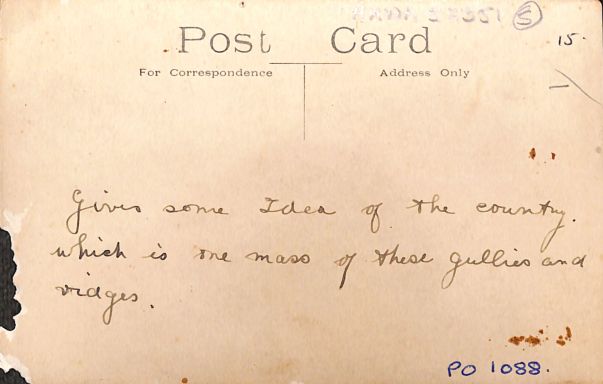 5
Post Card
15.
For Correspondence
Address Only
Gives some Idea of the country.
which is one mass of these gullies and
ridges.
PO 1088.